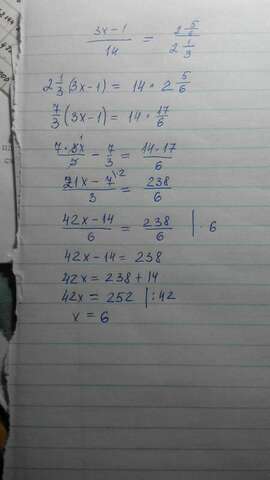 (3x-1)/14 = (2 5/6)/(2 1/3)
2 1/3 (3x-1) = 14 · 2 5/6
7/3 (3x-1) = 14 · 17/6
(7·3x)/3 - 7/3 = (14·17)/6
(21x - 7)/3 \·2 = 238/6
(42x-14)/6 = 238/6 | · 6
42x-14 = 238
42x = 238 + 14
42x = 252 | :42
x = 6